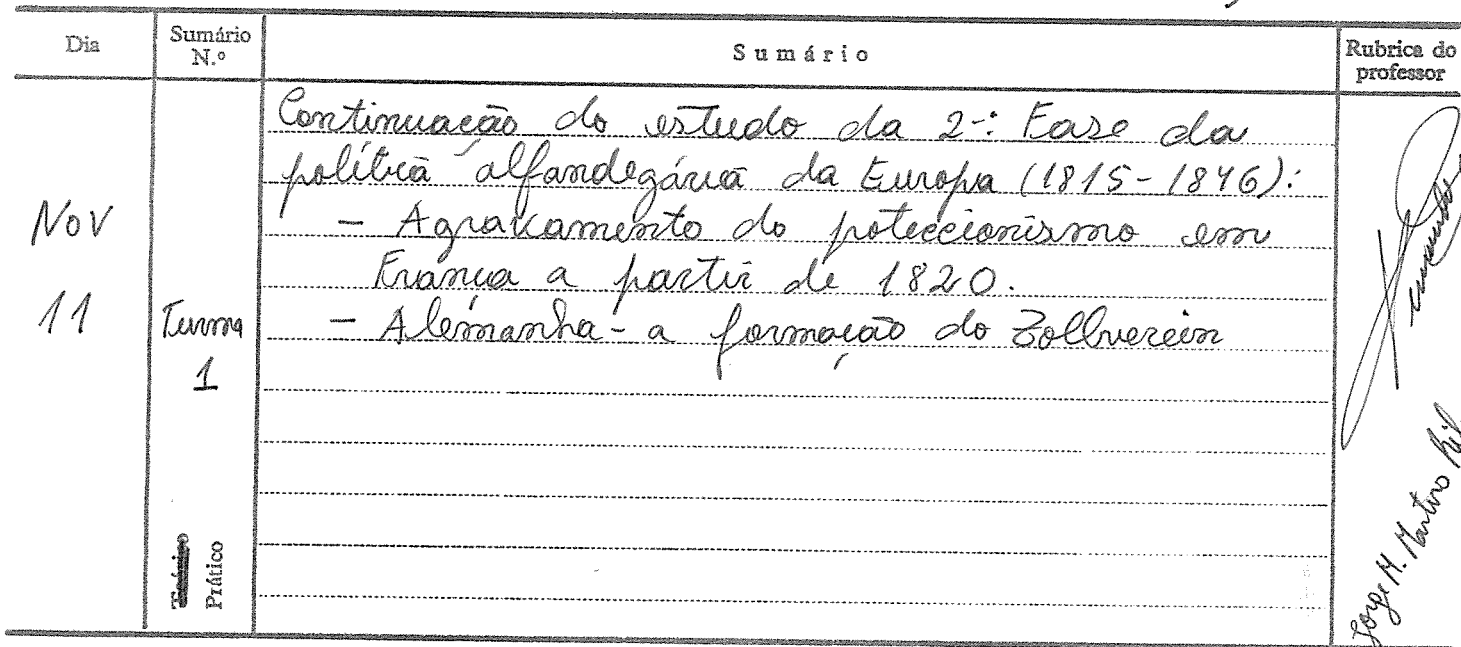 Dia
Sumário N.º
Sumário
Rubrica do professor
Nov
11
Turma
1
Prático
Continuação do estudo da 2.ª Fase da
política alfandegária da Europa (1815-1846):
- Agravamento do poteccionismo em
França a partir de 1820.
- Alemanha - a formação do Zollverein
Jorge M. Martins